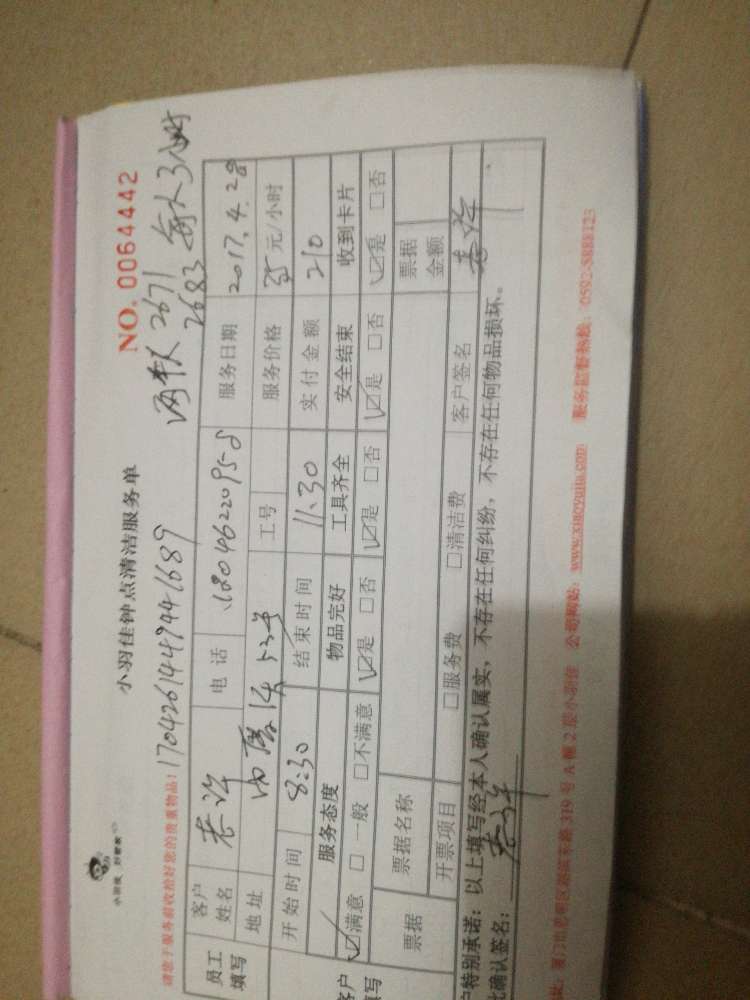 小羽佳钟点清洁服务单
NO. 0064442
请您于服务前收拾好您的贵重物品：
1704261449441689
2671
2683 每人3小时
员工填写
客户姓名
电话
服务日期 2017.4.28
地址
工号
服务价格 35元/小时
开始时间 8:30
结束时间 11:30
实付金额 210
服务态度 物品完好 工具齐全 安全结束 收到卡片
☑满意 □一般 □不满意 ☑是 □否 ☑是 □否 ☑是 □否 ☑是 □否
票据 票据名称 票据金额
开票项目 □服务费 □清洁费 客户签名
户特别承诺：以上填写经本人确认属实，不存在任何纠纷，不存在任何物品损坏。
此确认签名：
319号A幢2层小羽佳 公司网站：www.xiaoyujia.com 服务监督热线：0592-5888123